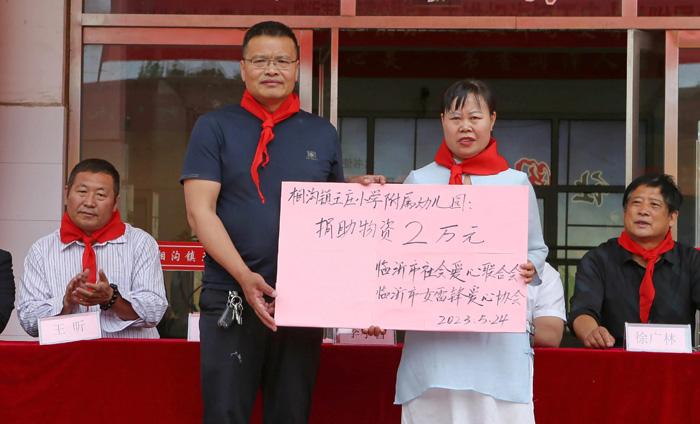 相沟镇王庄小学附属幼儿园：
捐助物资 2万元
临沂市社会爱心联合会
临沂市女雷锋爱心协会
2023.5.24
相沟镇
王昕
徐广林